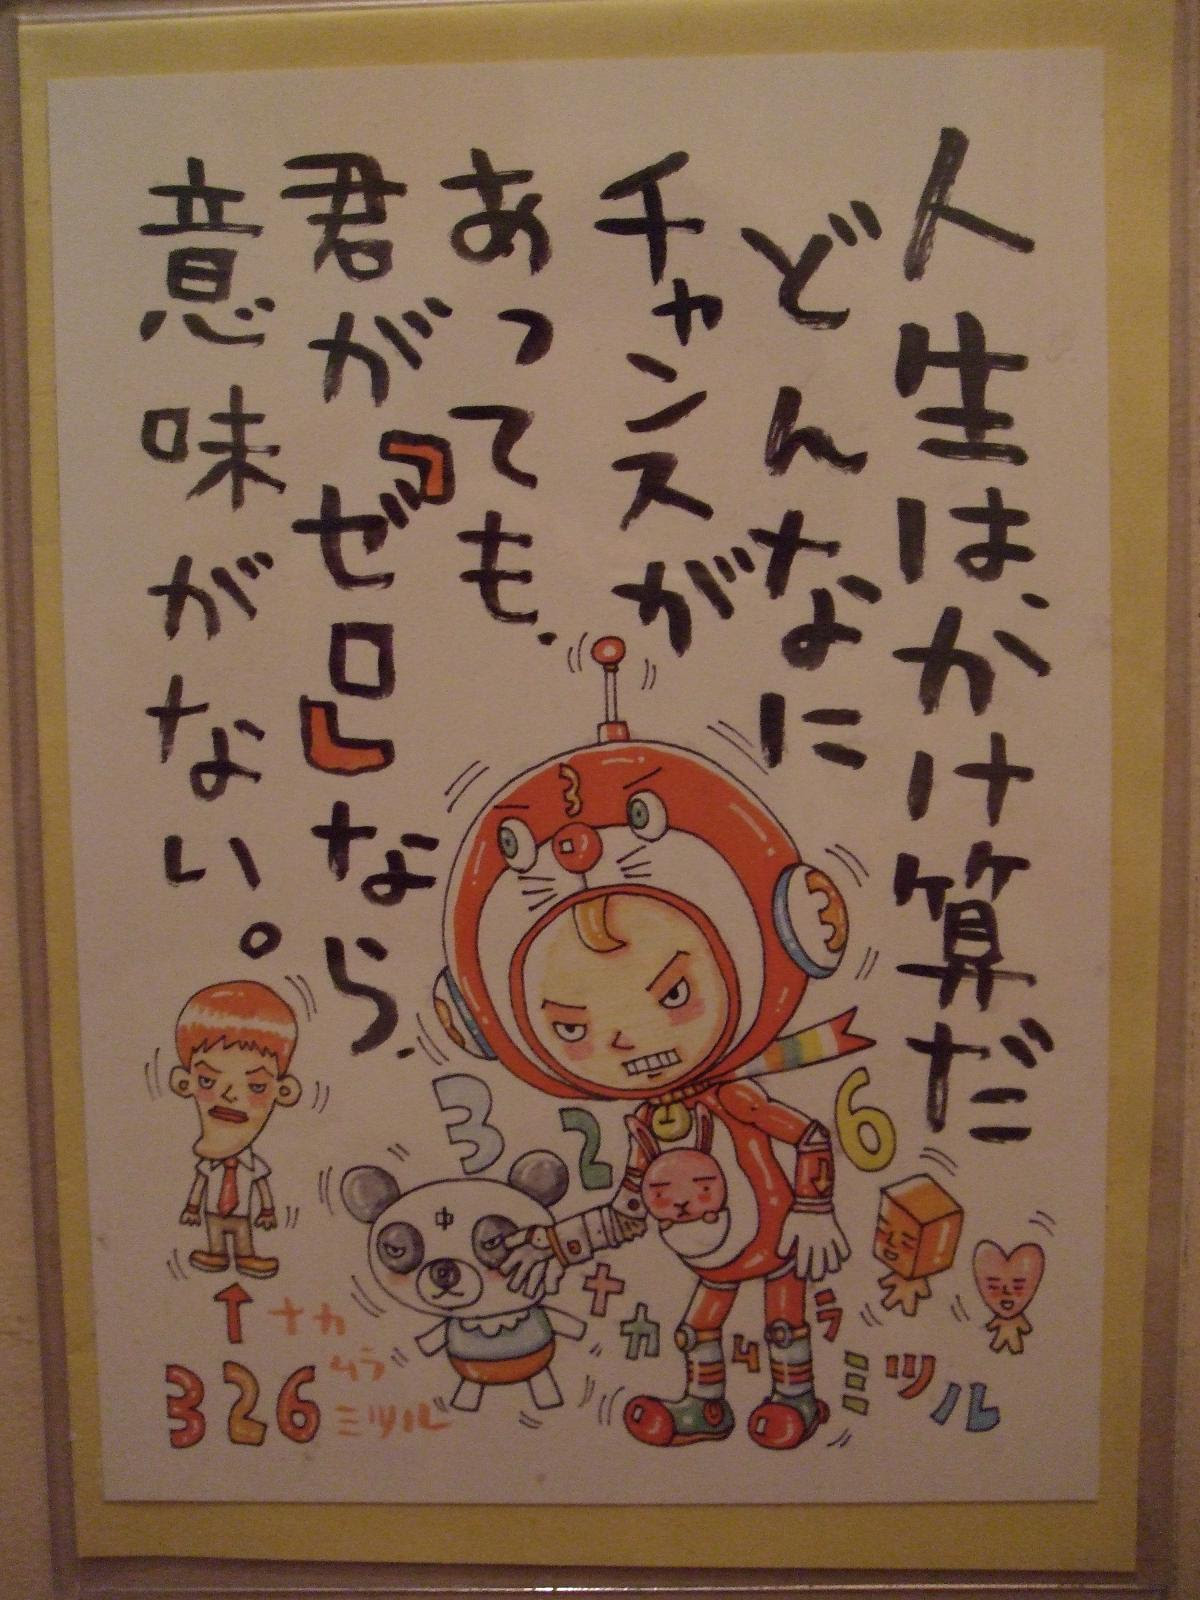 人生は、かけ算だ
どんなに
チャンスが
あっても、
君が『ゼロ』なら、
意味がない。
3
3
3 2 6
中
ナカムラミツル
326
ナカ
ムラ
ミツル